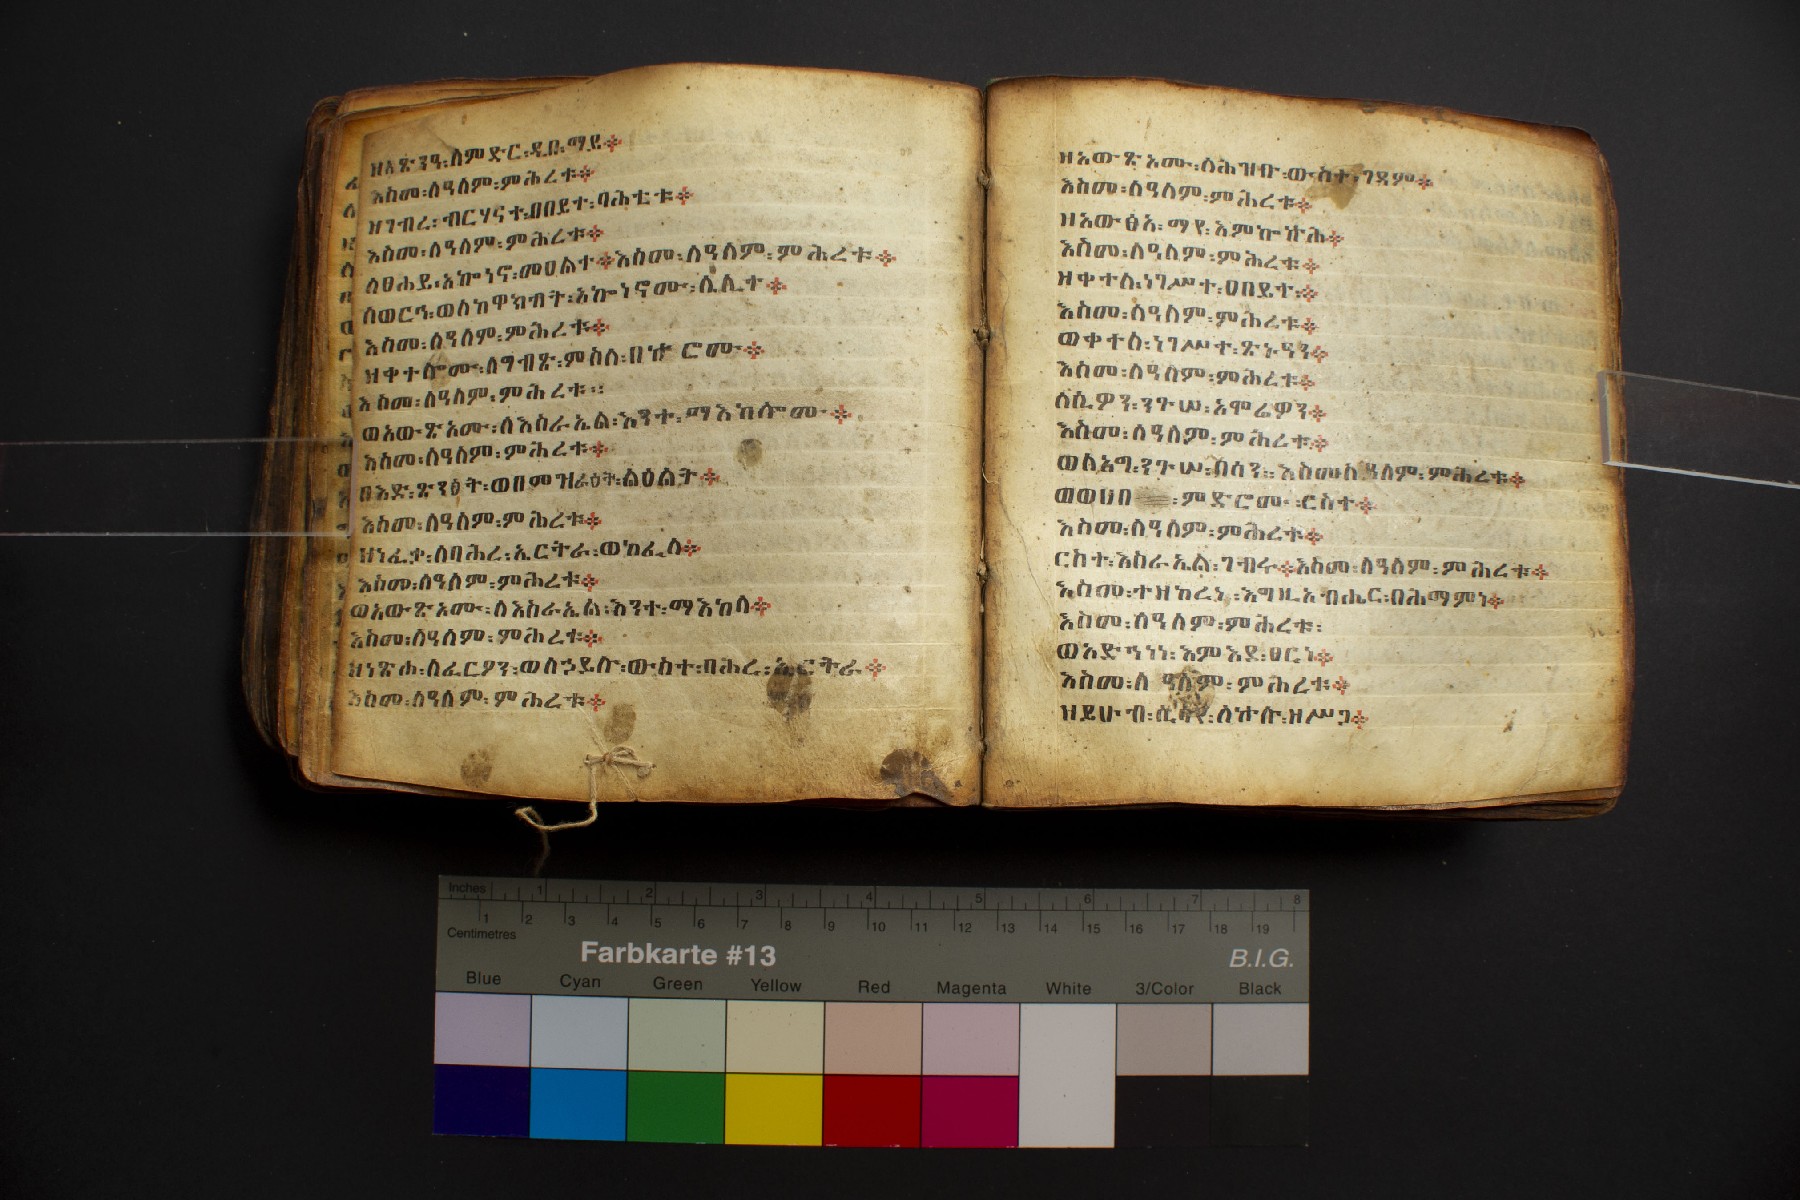 ዘአጽንዓ፡ለምድር፡ዲበ፡ማይ፨
እስመ፡ለዓለም፡ምሕረቱ፨
ዘገብረ፡ብርሃናተ፡ዐበይተ፡ባሕቲቱ፨
እስመ፡ለዓለም፡ምሕረቱ፨
ለፀሐይ፡አኰነኖ፡መዐልተ፨እስመ፡ለዓለም፡ምሕረቱ፨
ለወርኀ፡ወለከዋክብት፡አኰነኖሙ፡ሌሊተ፨
እስመ፡ለዓለም፡ምሕረቱ፨
ዘቀተሎሙ፡ለግብጽ፡ምስለ፡በኵሮሙ፨
እስመ፡ለዓለም፡ምሕረቱ፡፡
ወአውጽአሙ፡ለእስራኤል፡እንተ፡ማእከሎሙ፨
እስመ፡ለዓለም፡ምሕረቱ፨
በእድ፡ጽንዕት፡ወበምዝራዕት፡ልዕልት፨
እስመ፡ለዓለም፡ምሕረቱ፨
ዘነፈቃ፡ለባሕረ፡ኤርትራ፡ወከፈላ፨
እስመ፡ለዓለም፡ምሕረቱ፨
ወአውጽአሙ፡ለእስራኤል፡እንተ፡ማእከላ፨
እስመ፡ለዓለም፡ምሕረቱ፨
ዘነጽሐ፡ለፈርዖን፡ወለኃይሉ፡ውስተ፡ባሕረ፡ኤርትራ፨
እስመ፡ለዓለም፡ምሕረቱ፨
ዘአውጽአሙ፡ለሕዝቡ፡ውስተ፡ገዳም፨
እስመ፡ለዓለም፡ምሕረቱ፨
ዘአውፅአ፡ማየ፡እምኰኵሕ፨
እስመ፡ለዓለም፡ምሕረቱ፨
ዘቀተለ፡ነገሥተ፡ዐበይተ፨
እስመ፡ለዓለም፡ምሕረቱ፨
ወቀተለ፡ነገሥተ፡ጽኑዓን፨
እስመ፡ለዓለም፡ምሕረቱ፨
ለሴዎን፡ንጉሠ፡አሞሬዎን፨
እስመ፡ለዓለም፡ምሕረቱ፨
ወለአግ፡ንጉሠ፡ባሳን፡፡እስመ፡ለዓለም፡ምሕረቱ፨
ወወሀበ፡ምድሮሙ፡ርስተ፨
እስመ፡ለዓለም፡ምሕረቱ፨
ርስተ፡እስራኤል፡ገብሩ፨እስመ፡ለዓለም፡ምሕረቱ፨
እስመ፡ተዘከረነ፡እግዚአብሔር፡በሕማምነ፨
እስመ፡ለዓለም፡ምሕረቱ፡
ወአድኀነነ፡እምእደ፡ፀርነ፨
እስመ፡ለዓለም፡ምሕረቱ፨
ዘይሁብ፡ሲሳየ፡ለኵሉ፡ዘሥጋ፨